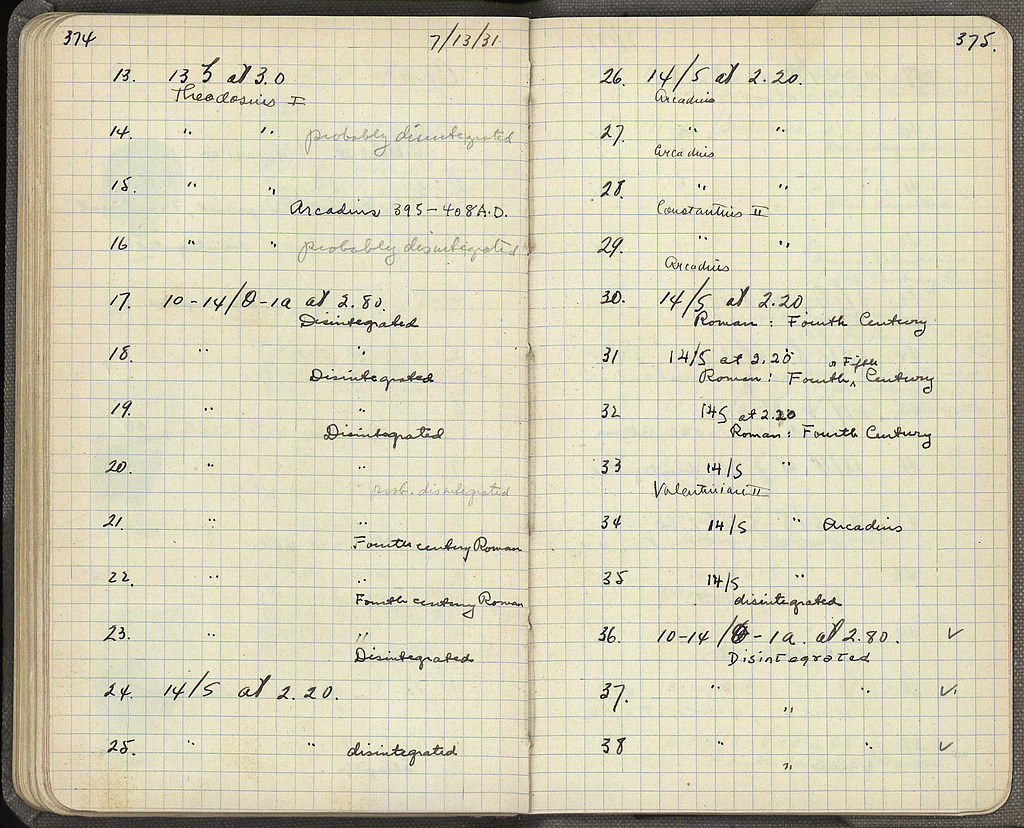 374 7/13/31
13. 13 5 at 3.0
Theodosius I
14. " " probably disintegrated
15. " "
Arcadius 395-408 A.D.
16 " " probably disintegrated
17. 10-14/θ-1a at 2.80.
Disintegrated
18. " "
Disintegrated
19. " "
Disintegrated
20. " "
prob. disintegrated
21. " "
Fourth century Roman
22. " "
Fourth century Roman
23. " "
Disintegrated
24. 14/5 at 2.20.
25. " " disintegrated
375.
26. 14/5 at 2.20.
Arcadius
27. " "
Arcadius
28. " "
Constantius II
29. " "
Arcadius
30. 14/5 at 2.20
Roman: Fourth Century
31 14/5 at 2.20
Roman: Fourth ^ or Fifth Century
32 145 at 2.20
Roman: Fourth Century
33 14/5 "
Valentinian II
34 14/5 " Arcadius
35 14/5 "
disintegrated
36. 10-14/θ-1a. at 2.80. ✓
Disintegrated
37. " " ✓
"
38 " " ✓
"